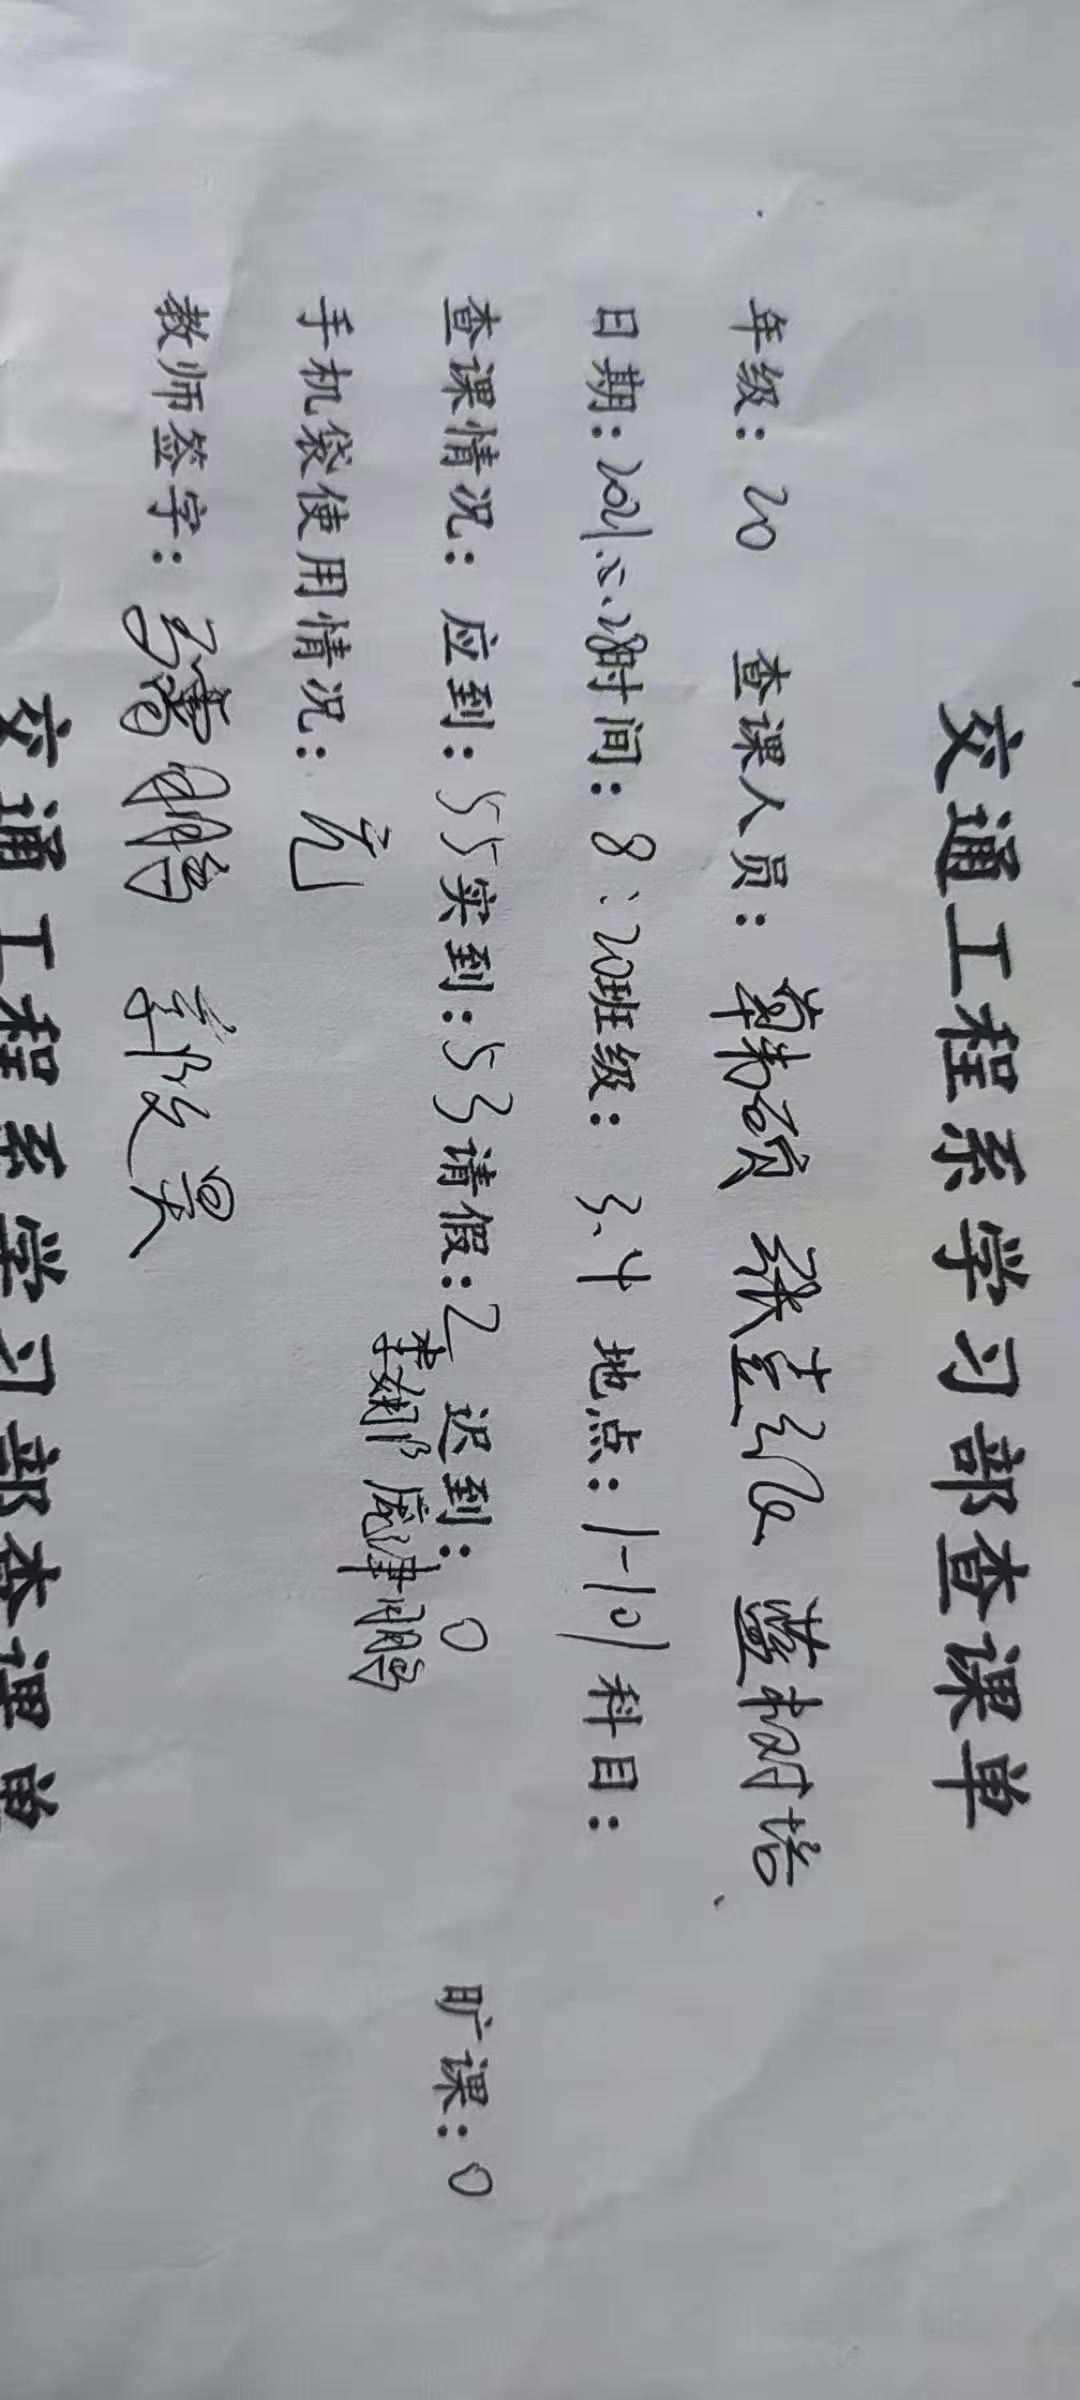 交通工程系学习部查课单
年级：20 查课人员：韩硕 张 蓝树培
日期：2021.5.28时间：8：20班级：3.4 地点：1-101科目：
查课情况：应到：55实到：53请假：2 迟到：0 旷课：0
手机袋使用情况：无
教师签字：
交通工程系学习部查课单